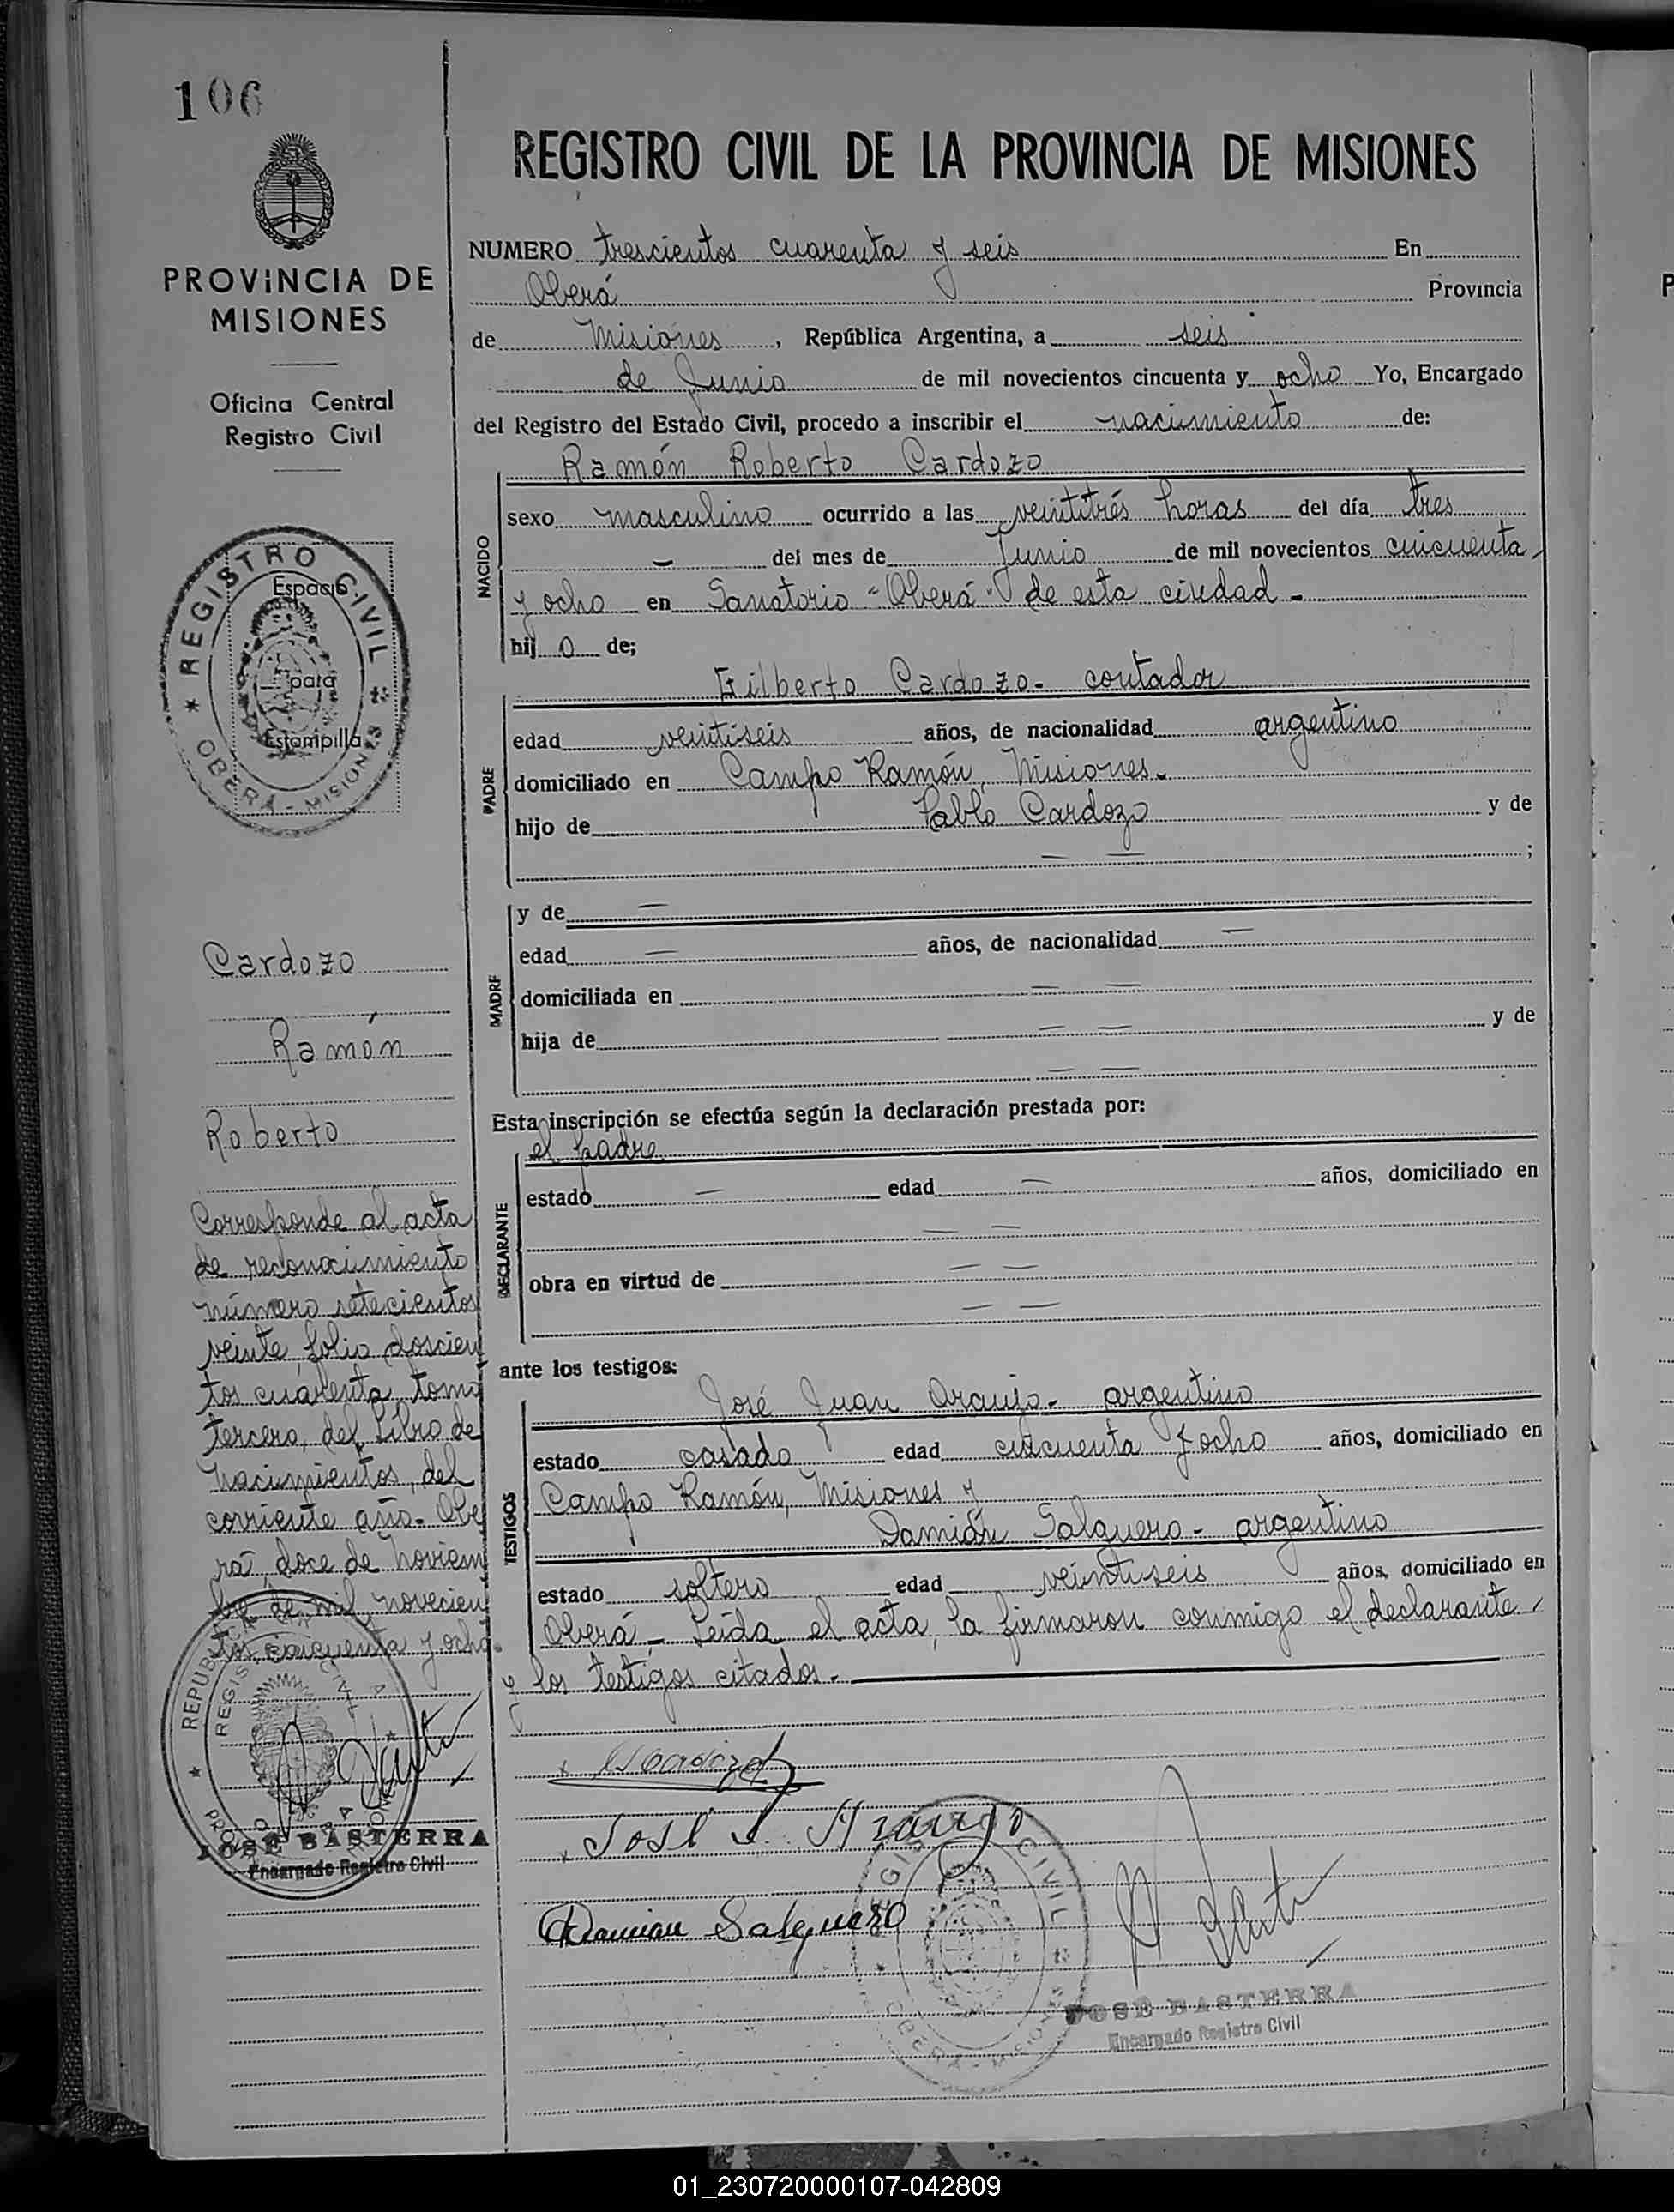 106
PROVINCIA DE
MISIONES
Oficina Central
Registro Civil
REGISTRO CIVIL
Espacio
para
Estampilla
OBERÁ - MISIONES
Cardozo
Ramón
Roberto
Corresponde al acta
de reconocimiento
número setecientos
veinte folio doscien
tos cuarenta, tomo
tercero, del Libro de
Nacimientos, del
corriente año.- Obe
rá, doce de Noviem
bre de mil novecien
tos cincuenta y ocho.
JOSE BASTERRA
Encargado Registro Civil
REGISTRO CIVIL DE LA PROVINCIA DE MISIONES
NUMERO trescientos cuarenta y seis En
Oberá Provincia
de Misiones, República Argentina, a seis
de Junio de mil novecientos cincuenta y ocho Yo, Encargado
del Registro del Estado Civil, procedo a inscribir el nacimiento de:
Ramón Roberto Cardozo
NACIDO
sexo masculino ocurrido a las veintitrés horas del día tres
— del mes de Junio de mil novecientos cincuenta
y ocho en Sanatorio "Oberá" de esta ciudad -
hij o de;
Gilberto Cardozo - contador
PADRE
edad veintiseis años, de nacionalidad argentino
domiciliado en Campo Ramón, Misiones-
hijo de Pablo Cardozo y de
— — ;
MADRE
y de —
edad — años, de nacionalidad —
domiciliada en — —
hija de — — y de
— —
Esta inscripción se efectúa según la declaración prestada por:
el padre
DECLARANTE
estado — edad — años, domiciliado en
— —
obra en virtud de — —
— —
ante los testigos:
José Juan Araujo - argentino
TESTIGOS
estado casado edad cincuenta y ocho años, domiciliado en
Campo Ramón, Misiones y
Damián Salguero - argentino
estado soltero edad veintiseis años, domiciliado en
Oberá - Leída el acta, la firmaron conmigo el declarante
y los testigos citados.-
José J. Araujo
Damian Salguero
REGISTRO CIVIL
OBERÁ - MISIONES
JOSE BASTERRA
Encargado Registro Civil
01_230720000107-042809